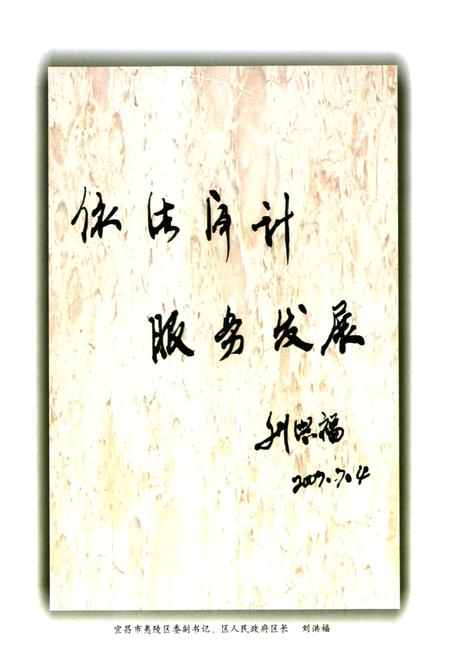 依法审计
服务发展
刘洪福
2007.7.4
宜昌市夷陵区委副书记、区人民政府区长 刘洪福